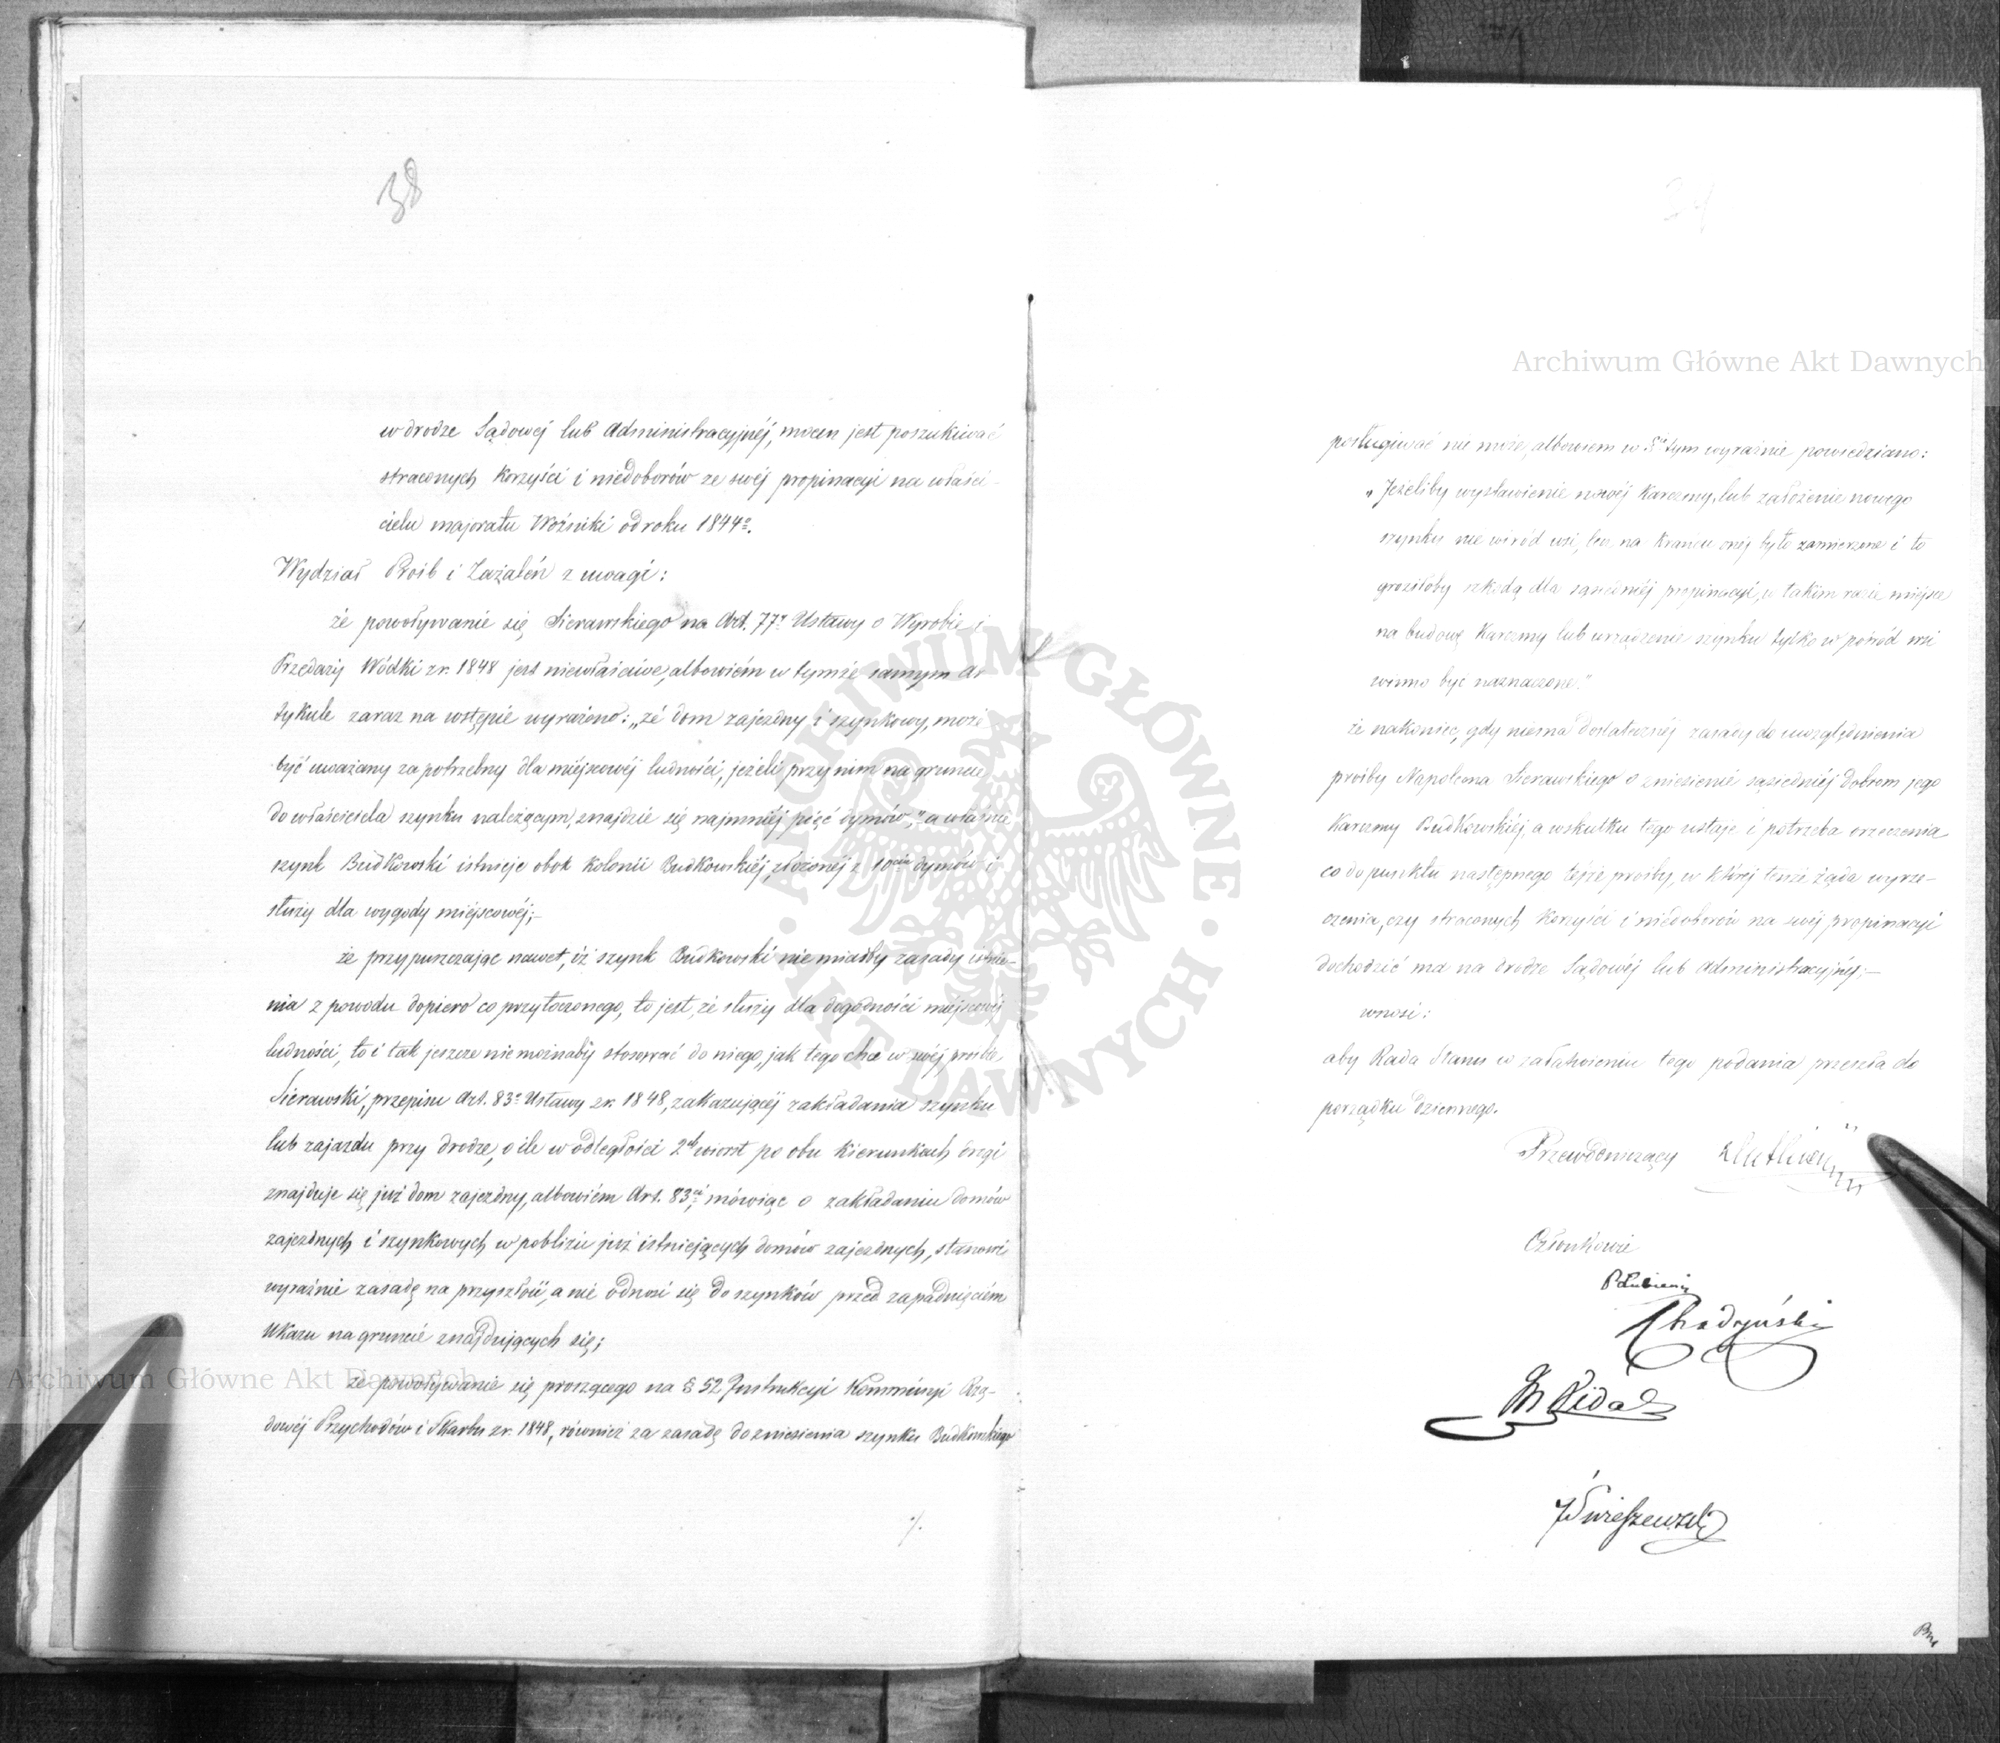 38
w drodze Sądowej lub Administracyjnéj, mocen jest poszukiwać
straconych korzyści i niedoborów ze swéj propinacyi na właści-
cielu majoratu Woźniki od roku 1844º.
Wydział Próśb i Zażaleń z uwagi:
że powoływanie się Sierawskiego na Art. 77º Ustawy o Wyrobie i
Przedaży Wódki z r. 1848 jest niewłaściwe, albowiém w tymże samym Ar
tykule zaraz na wstępie wyrażono: „że dom zajezdny i szynkowy, może
być uważany za potrzebny dla miéjscowéj ludności, jeżeli przy nim na gruncie
do właściciela szynku należącym, znajdzie się najmniéj pięć dymów," a właśnie
szynk Budkowski istnieje obok kolonii Budkowskiéj, złożonéj z 10ciu dymów i
służy dla wygody miéjscowéj;-
że przypuszczając nawet, iż szynk Budkowski nie miałby zasady istnie-
nia z powodu dopiero co przytoczonego, to jest, że służy dla dogodności miejscowéj
ludności, to i tak jeszcze nie możnaby stosować do niego, jak tego chce w swéj prośbie
Sierawski, przepisu Art. 83º Ustawy z r. 1848, zakazującéj zakładania szynku
lub zajazdu przy drodze, o ile w odległości 2ch wiorst po obu kierunkach drogi
znajduje się już dom zajezdny, albowiém Art. 83ci, mówiąc o zakładaniu domów
zajezdnych i szynkowych w pobliżu już istniejących domów zajezdnych, stanowi
wyraźnie zasadę na przyszłość, a nie odnosi się do szynków przed zapadnięciém
Ukazu na gruncie znajdujących się;
że powoływanie się proszącego na § 52 Instrukcyi Kommissyi Rzą-
dowéj Przychodów i Skarbu z r. 1848, również za zasadę do zniesienia szynku Budkowskiego
posługiwać nie może, albowiem w §ie tym wyraźnie powiedziano:
„Jeżeliby wystawienie nowéj karczmy, lub założenie nowego
szynku nie wśród wsi, lecz na krańcu onéj było zamierzone i to
groziłoby szkodą dla sąsiedniéj propinacyi, w takim razie miejsce
na budowę karczmy lub urządzenie szynku tylko w pośród wsi
winno być naznaczone."
że nakoniec, gdy niema dostatecznéj zasady do uwzględnienia
prośby Napoleona Sierawskiego o zniesienie sąsiedniéj dobrom jego
karczmy Budkowskiéj, a wskutku tego ustaje i potrzeba orzeczenia
co do punktu następnego téjże prośby, w któréj tenże żąda wyrze-
czenia, czy straconych korzyści i niedoborów na swéj propinacyi
dochodzić ma na drodze Sądowéj lub Administracyjnéj;-
wnosi:
aby Rada Stanu w załatwieniu tego podania przeszła do
porządku dziennego.
Przewodniczący
Członkowie
P. Łubieński